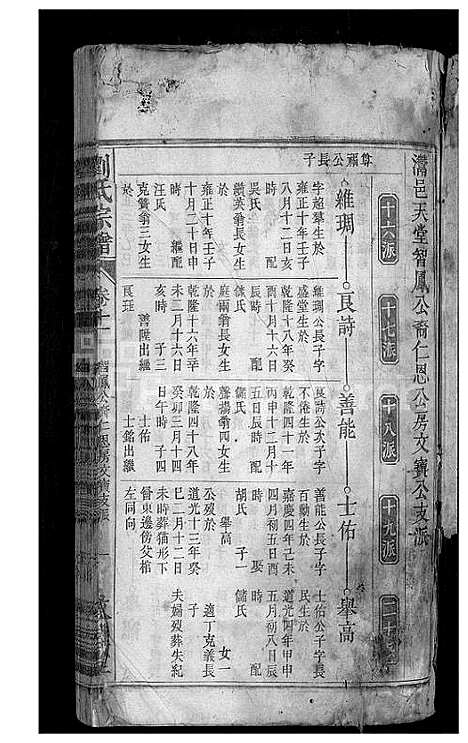 灊邑天堂智鳳公裔仁恩公房文寶公支派
十六派
十七派
十八派
十九派
二十
尊禰公長子
維琱
良詩
善能
士佑
舉高
字超羣生於
雍正十年壬子
八月十二日亥
時 配
吳氏
纘英翁長女生
於
雍正十年壬子
十月二十日申
時 繼配
汪氏
克簧翁三女生
於
維琱公長子字
盛堂生於
乾隆十八年癸
酉十月十六日
辰時 配
儲氏
庭兩翁長女生
於
乾隆十六年辛
未二月十六日
亥時 子三
善陞出繼
良珏
良詩公次子字
不倦生於
乾隆四十一年
丙申十二月十
五日辰時 配
儲氏
聲揚翁四女生
於
乾隆四十八年
癸卯三月十四
日午時 子四
士佑
士銘出繼
善能公長子字
百勳生於
嘉慶四年己未
四月初五日酉
時 娶
胡氏 子一
舉高
公歿於
道光十三年癸
巳二月十二日
未時葬猫形下
畬東邊傍父棺
左同向
士佑公子字長
民生於
道光四年甲申
五月初八日辰
時 配
儲氏
女一
適丁克義長
子
夫婦歿葬失紀
劉氏宗譜
卷十一
智鳳公裔仁恩房文寶支派
一